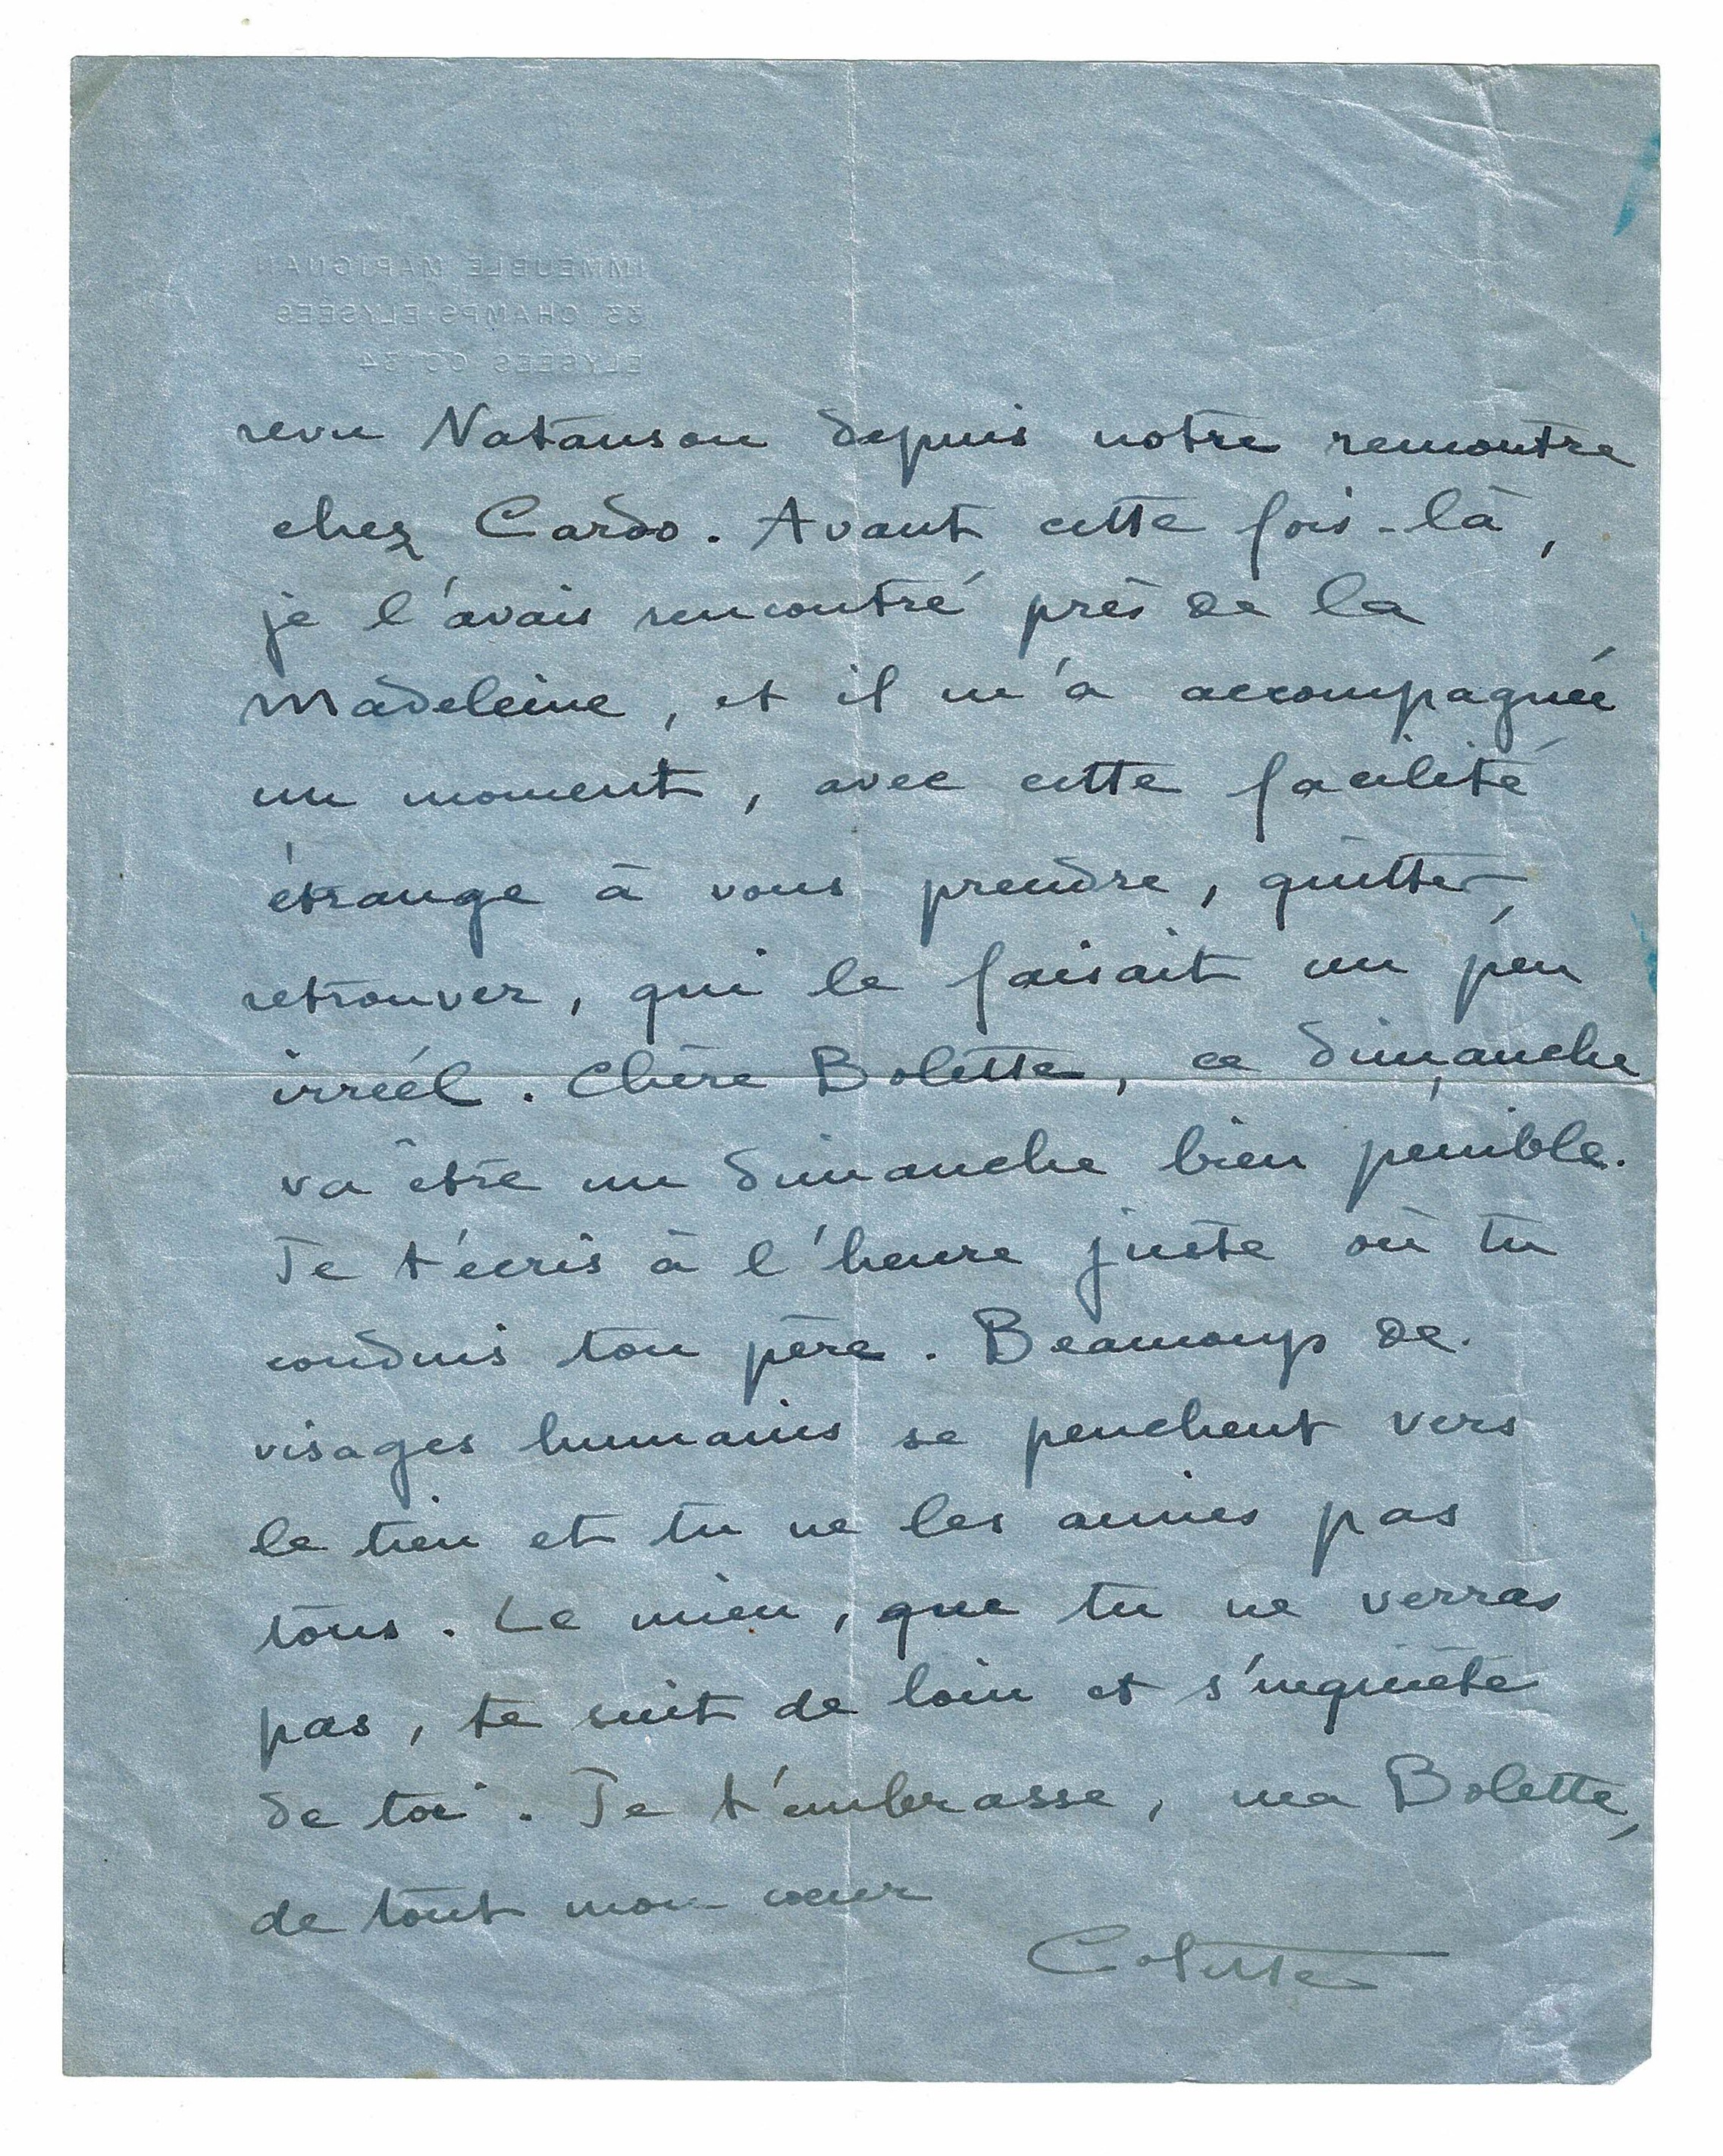 IMMEUBLE MARIGNAN
33 CHAMPS-ELYSÉES
ELYSÉES 00-34
revu Natanson depuis notre rencontre
chez Cardo. Avant cette fois-là,
je l'avais rencontré près de la
Madeleine, et il m'a accompagnée
un moment, avec cette facilité
étrange à vous prendre, quitter,
retrouver, qui le faisait un peu
irréel. Chère Bolette, ce dimanche
va être un dimanche bien pénible.
Je t'écris à l'heure juste où tu
conduis ton père. Beaucoup de
visages humains se penchent vers
le tien et tu ne les aimes pas
tous. Le mien, que tu ne verras
pas, te suit de loin et s'inquiète
de toi. Je t'embrasse, ma Bolette,
de tout mon cœur
Colette